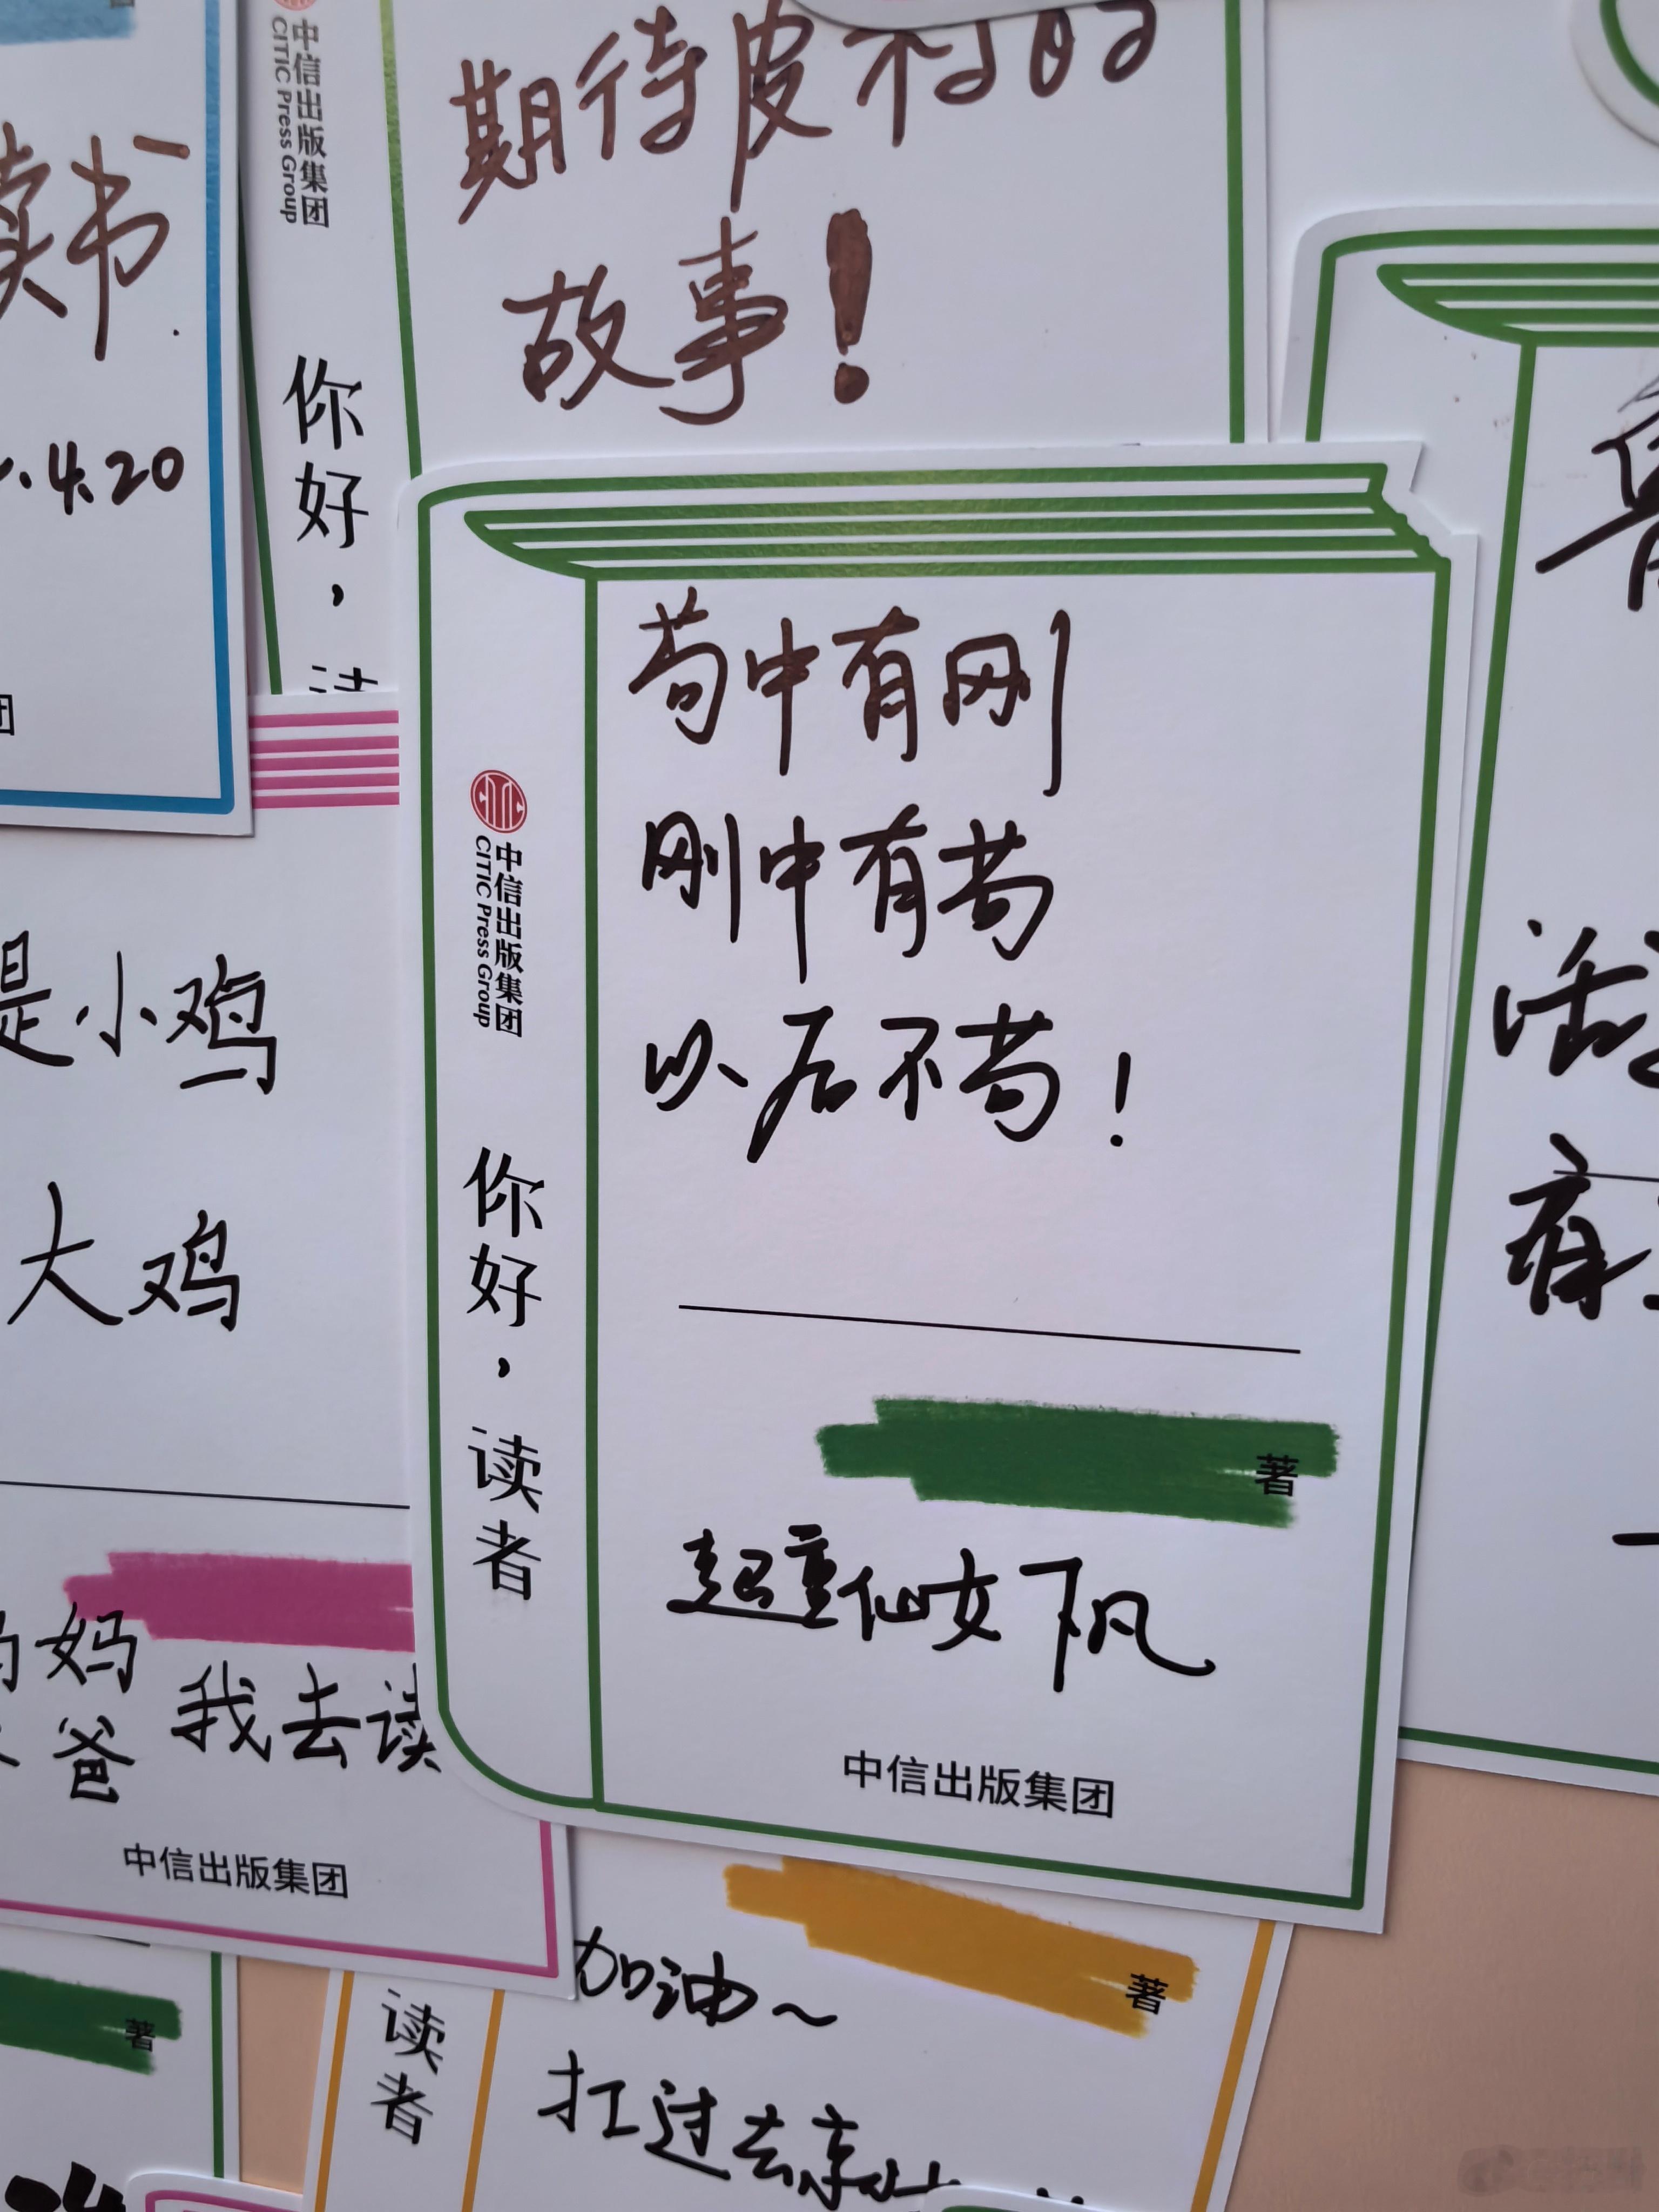 中信出版集团
CITIC Press Group
你好，
期待皮村的
故事！
读书
.4.20
团
苟中有刚
刚中有苟
以后不苟！
中信出版集团
CITIC Press Group
你好，读者
著
超重仙女下凡
中信出版集团
是小鸡
大鸡
妈
爸
我去读
中信出版集团
活
著
加油～
扛过去
读者
著